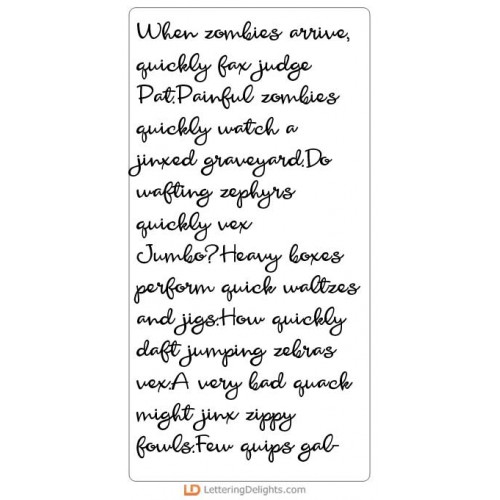 When zombies arrive,
quickly fax judge
Pat.Painful zombies
quickly watch a
jinxed graveyard.Do
wafting zephyrs
quickly vex
Jumbo?Heavy boxes
perform quick waltzes
and jigs.How quickly
daft jumping zebras
vex.A very bad quack
might jinx zippy
fowls.Few quips gal-
LD LetteringDelights.com